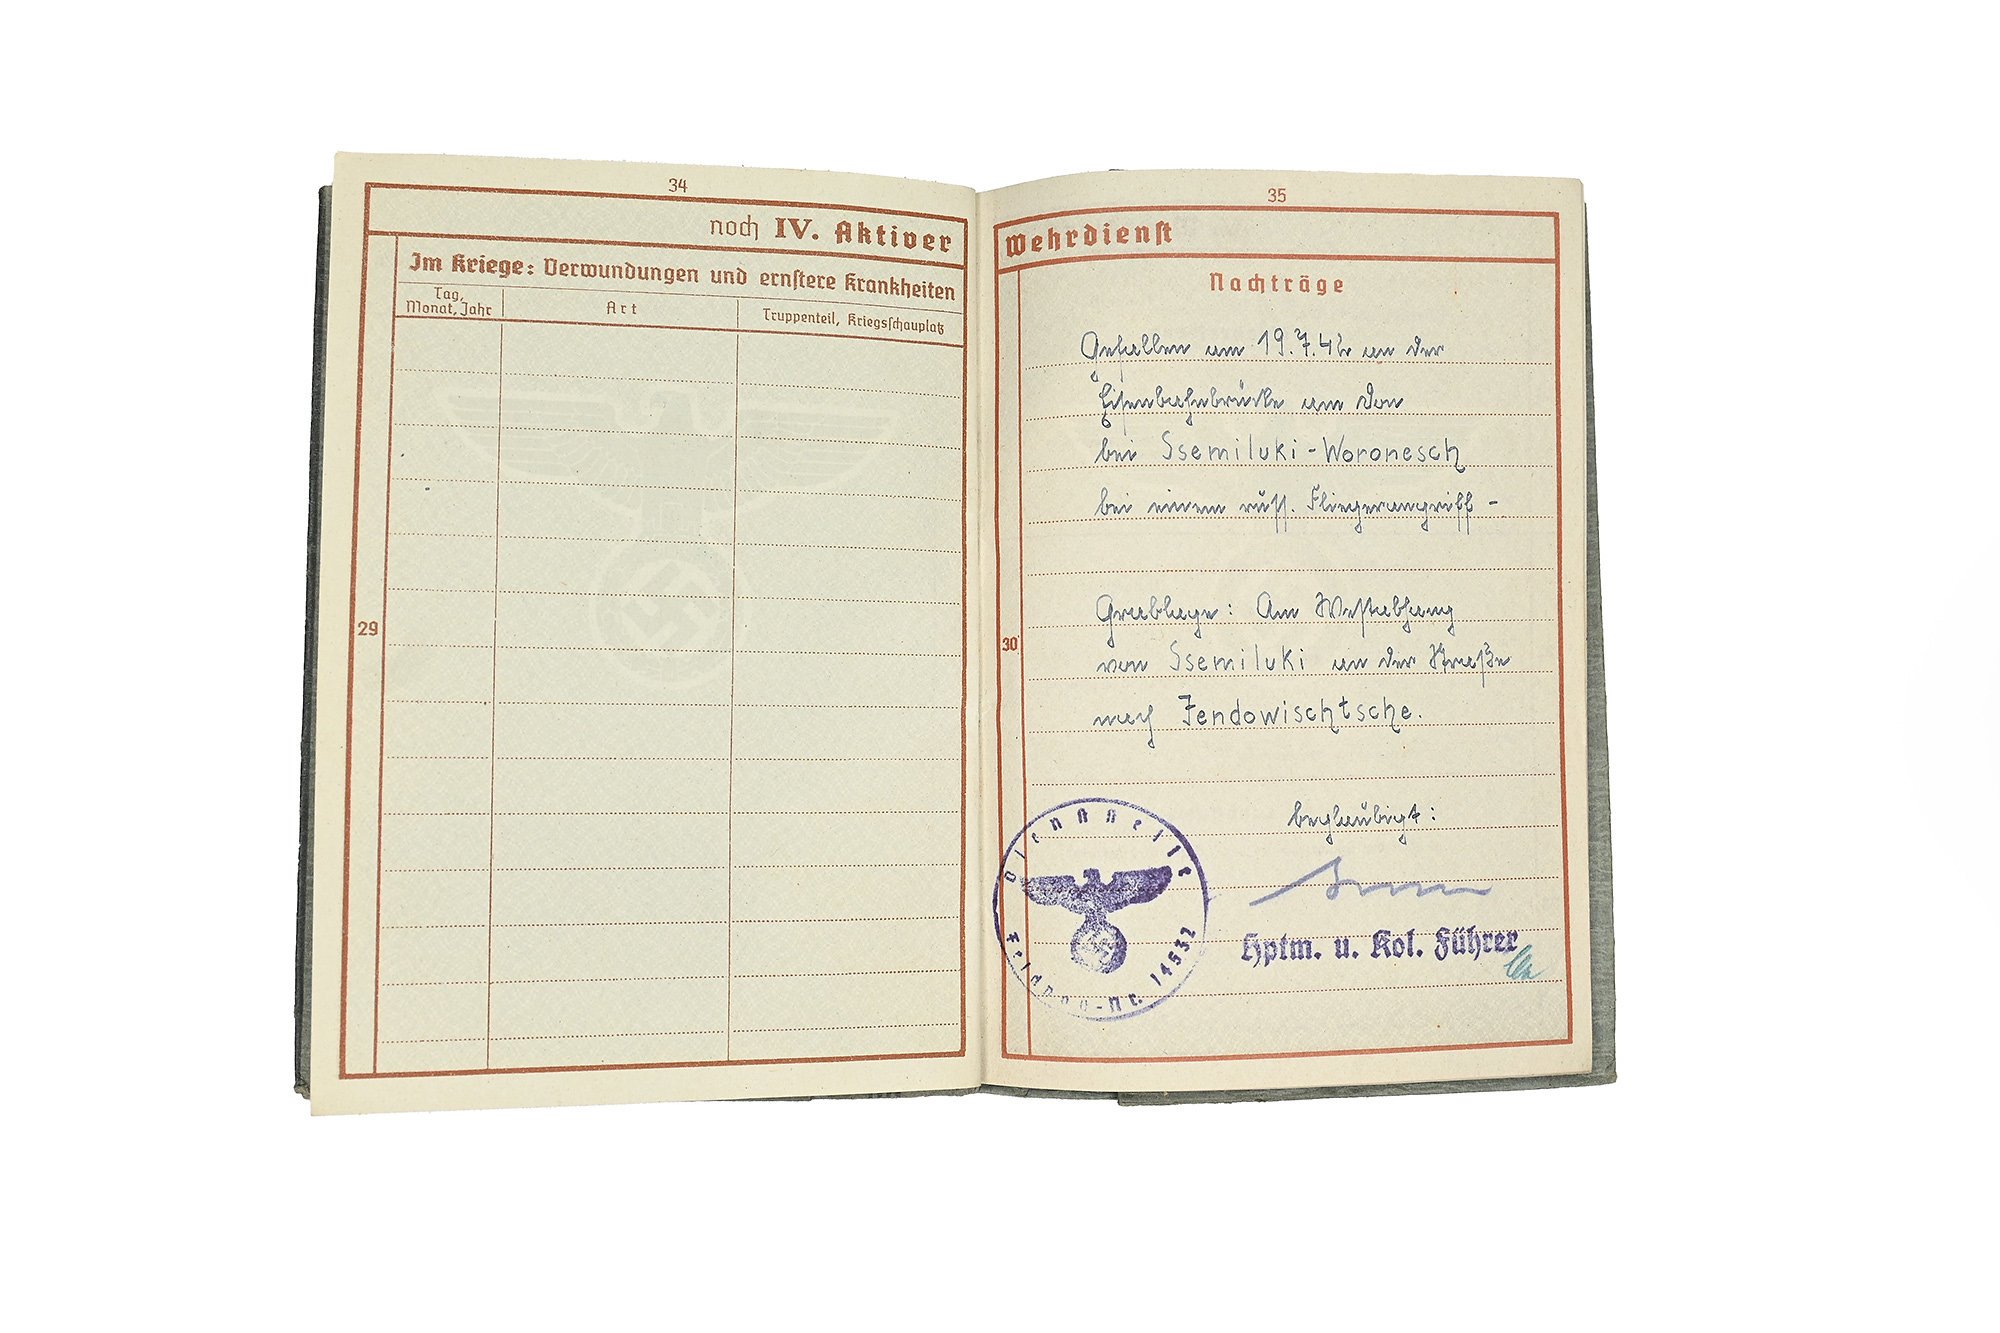 34
noch IV. Aktiver
Im Kriege: Verwundungen und ernstere Krankheiten
Tag, Monat, Jahr
Art
Truppenteil, Kriegsschauplatz
29
35
Wehrdienst
Nachträge
30
Gefallen am 19.7.42 an der
Eisenbahnbrücke am Don
bei Ssemiluki-Woronesch
bei einem russ. Fliegerangriff -
Grablage: Am Westabhang
von Ssemiluki an der Straße
nach Jendowischtsche.
beglaubigt:
Hptm. u. Kol. Führer
Dienststelle
Feldpost-Nr. 14532